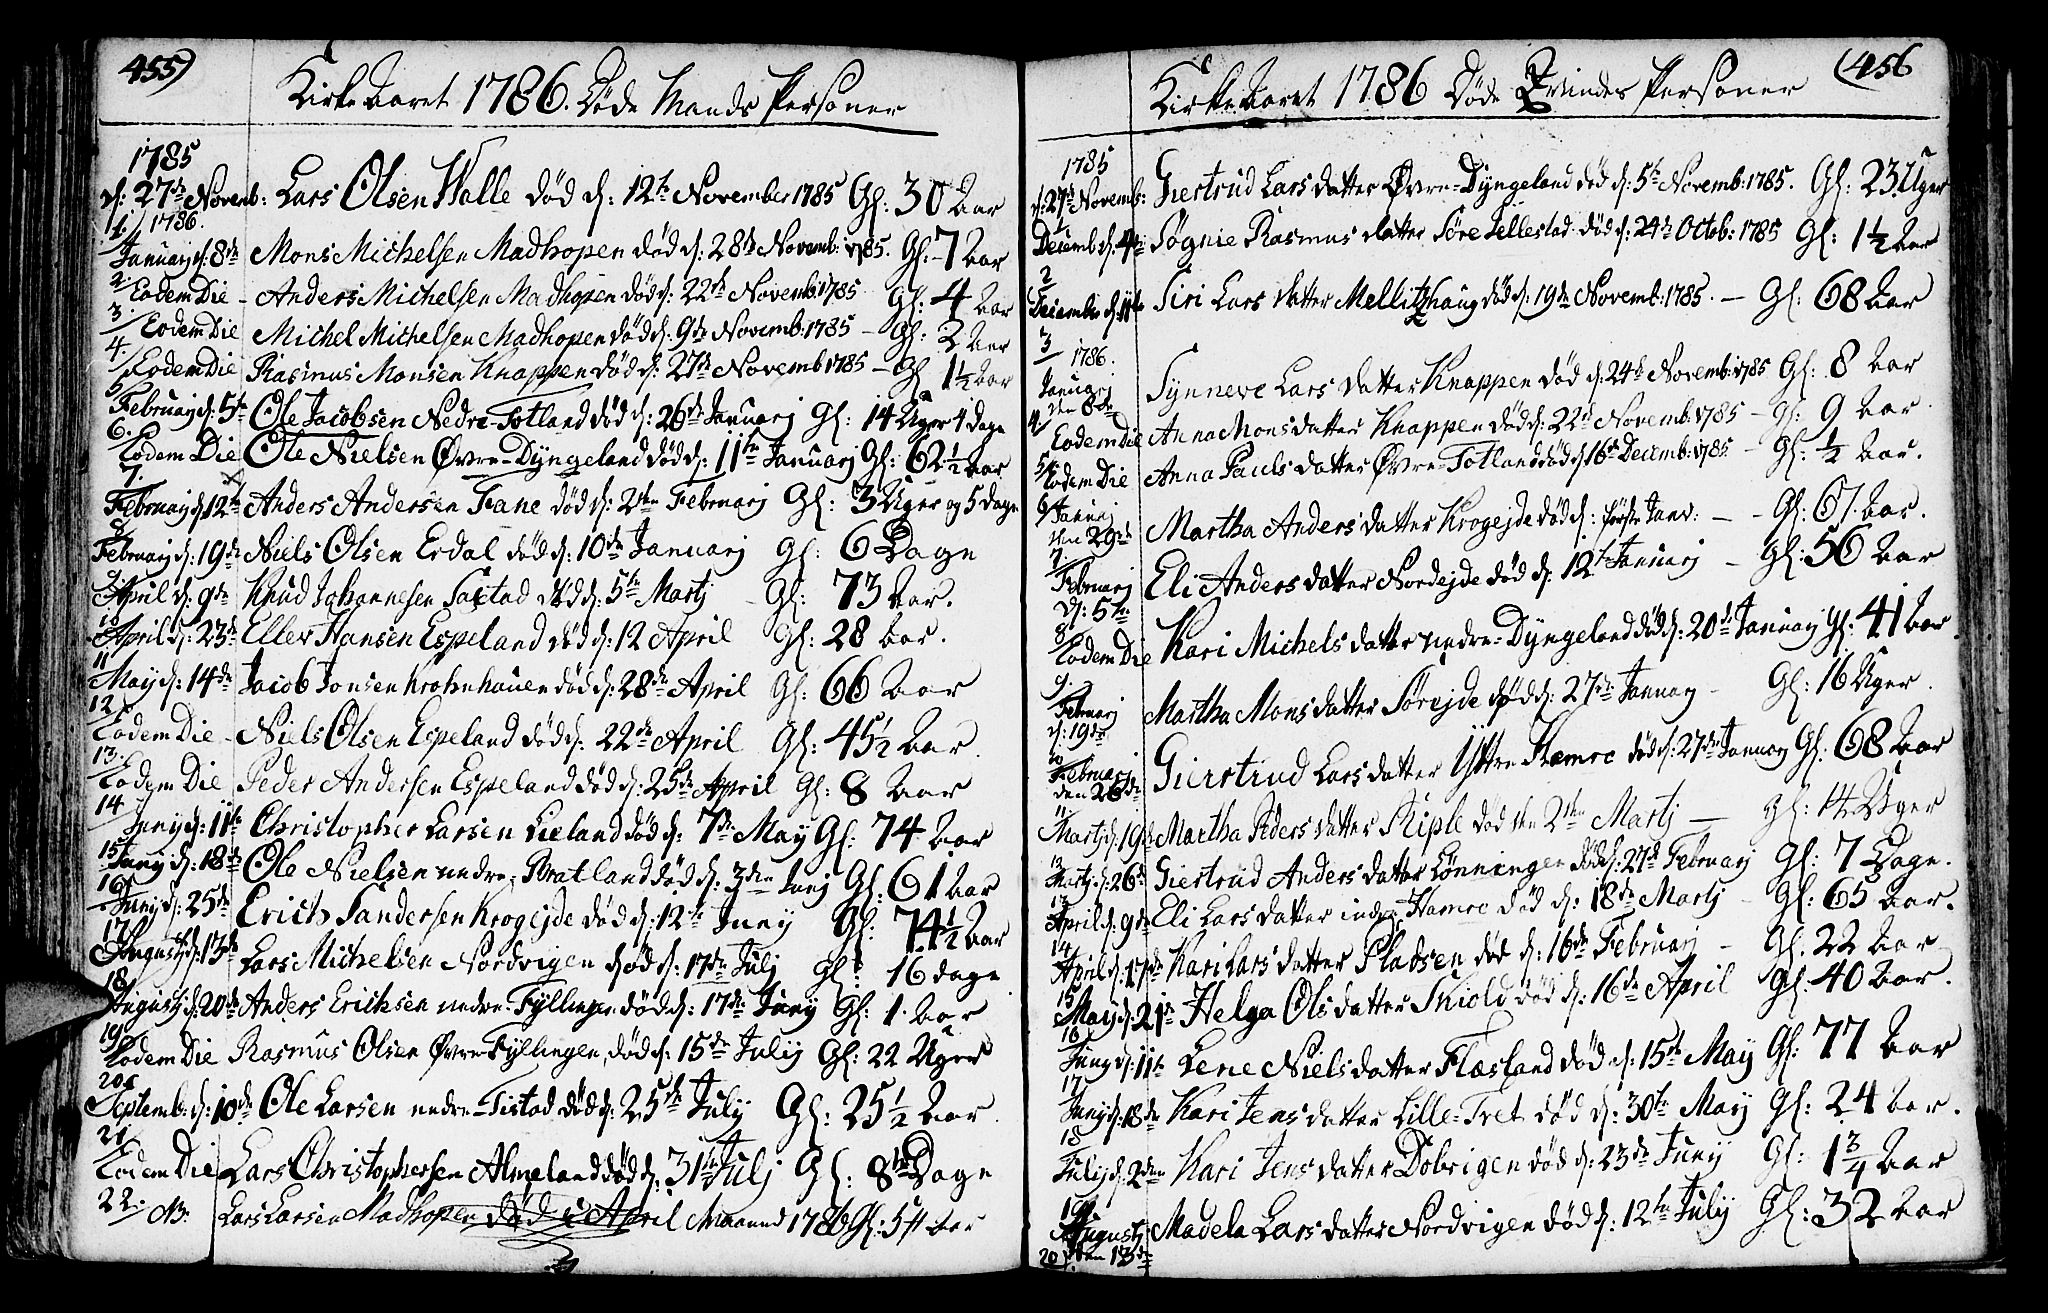 455)
Kirke Aaret 1786. Døde Mands Personer
1785
d: 27de Novemb: Lars Olsen Walle død d: 12te November 1785 Gl: 30 Aar
1./ 1786.
Januarj d: 8de Mons Michelsen Madhopen død d: 28de Novemb: 1785. Gl: 7 Aar
2/ Eodem Die - Anders Michelsen Madhopen død d: 22de Novemb: 1785 Gl: 4 Aar
3/ Eodem Die Michel Michelsen Madhopen død d: 9de Novemb: 1785 - Gl: 2 Aar
4/ Eodem Die Rasmus Monsen Knappen død d: 27de Novemb 1785 - Gl 1½ Aar
5/ Februarj d: 5te Ole Jacobsen Nedre-Totland død d: 26de Januarj Gl: 14 Uger 4 dage
6. Eodem Die Ole Nielsen Øvre-Dyngeland død d: 11te Januarj Gl: 62½ Aar
7. Februarj d: 12te Anders Andersen Fane død d: 2den Februarj Gl: 3 Uger og 5 Dage
8/ Februarj d: 19de Niels Olsen Erdal død d: 10de Januarj Gl: 6 Dage
9. April d: 9de Knud Johannesen død d: 5te Martj - Gl: 73 Aar.
10 April d: 23de Eller Hansen Espeland død d: 12 April Gl: 28 Aar.
11 Maij d: 14de Jacob Jonsen Krohnhauen død d: 28de April Gl: 66 Aar
12/ Eodem Die - Niels Olsen Espeland død d: 22de April Gl: 45½ Aar
13. Eodem Die Peder Andersen Espeland død d: 25de April Gl: 8 Aar
14 Junij d: 11te Christopher Larsen Lieland død d: 7de May Gl: 74 Aar
15 Junij d: 18de Ole Nielsen nedre-Bratland død d: 3den Junj Gl: 61 Aar
16 Junij d: 25de Erich Sandersen Krogejde død d: 12te Junij Gl: 74½ Aar
17 Augustj d: 13de Lars Michelsen Nordvigen død d: 17de Julj Gl: 16 dage
18/ Augustj d: 20de Anders Ericksen nedre-Fyllingen død d: 17de Junij Gl: 1. Aar
19 Eodem Die Rasmus Olsen Øvre-Fyllingen, død d: 15de Julij Gl: 22 Uger
20 Septemb: d: 10de Ole Larsen nedre-Tistad død d: 25de Julij Gl: 25½ Aar
21 Eodem Die Lars Christophersen død d: 31te Julj Gl: 8te Dage
22. NB. Lars Larsen Madhopen død i April Maaned 1786 Gl: Aar
(456
Kirke Aaret 1786 Døde Qvindes Personer
1785
d: 27de Novemb: Giertrud Lars datter Øvre-Dyngeland død d: 5te Novemb: 1785. Gl: 23 Uger
1 Decemb d: 4de Søgnie Rasmus datter Søre Tellestad død d: 24de Octob: 1785 Gl: 1½ Aar
2 December d: 11te Siri Lars datter Mellitzhaug død d: 19de Novemb: 1785. - Gl: 68 Aar
3 1786.
Januarj den 8de Synneve Lars datter Knappen død d: 24de Novemb: 1785 Gl: 8 Aar
4 Eodem Die Anna Mons datter Knappen død d: 22de Novemb: 1785 - Gl: 9 Aar.
5 Eodem Die Anna Pauls datter Øvre-Totland død d 16de Decemb: 1785 - Gl: ½ Aar.
6 Januj den 29de Martha Anders datter Krogejde død d: første Janv: - - Gl: 67. Aar.
7. Februarj d: 5te Eli Anders datter Nordejde død d: 12te Januarj - Gl: 56 Aar
8 Eodem Die Kari Michels datter nedre-Dyngeland død d: 20de Januarj Gl: 41 Aar
9. Februarj d: 19de Martha Mons datter Sørejde død d: 27de Januarj - Gl: 16 Uger.
10 Februarj den 26de Giertrud Lars datter Yttre Hamre død d: 27de Januarj Gl: 68 Aar
11 Martj d: 19de Martha Peders datter Skiple død den 2den Martj - Gl: 14 Uger
12 Martj d: 26de Giertrud Anders datter Lønningen død d: 27de Februarj Gl: 7 Dage.
13 April d: 9de Eli Lars datter indre Hamre død d: 18de Martj - Gl: 65 Aar.
14 April d: 17de Kari Lars datter Pladsen død d: 16de Februarj - Gl. 22 Aar
15 Maij d: 21de Helga Ols datter Skiold død d: 16de April Gl: 40 Aar.
16 Junij d: 11te Lene Niels datter Flæsland død d: 15de May Gl: 77 Aar
17 Junij d: 18de Kari Jens datter Lille-Tvet død d: 30te May Gl: 24 Aar.
18 Julij d: 2den Kari Jens datter Dolvigen død d: 23de Junij Gl: 1¾ Aar
19. Augustj den 13de Madela Lars datter Nordvigen død d: 12te Julij Gl: 32 Aar
20